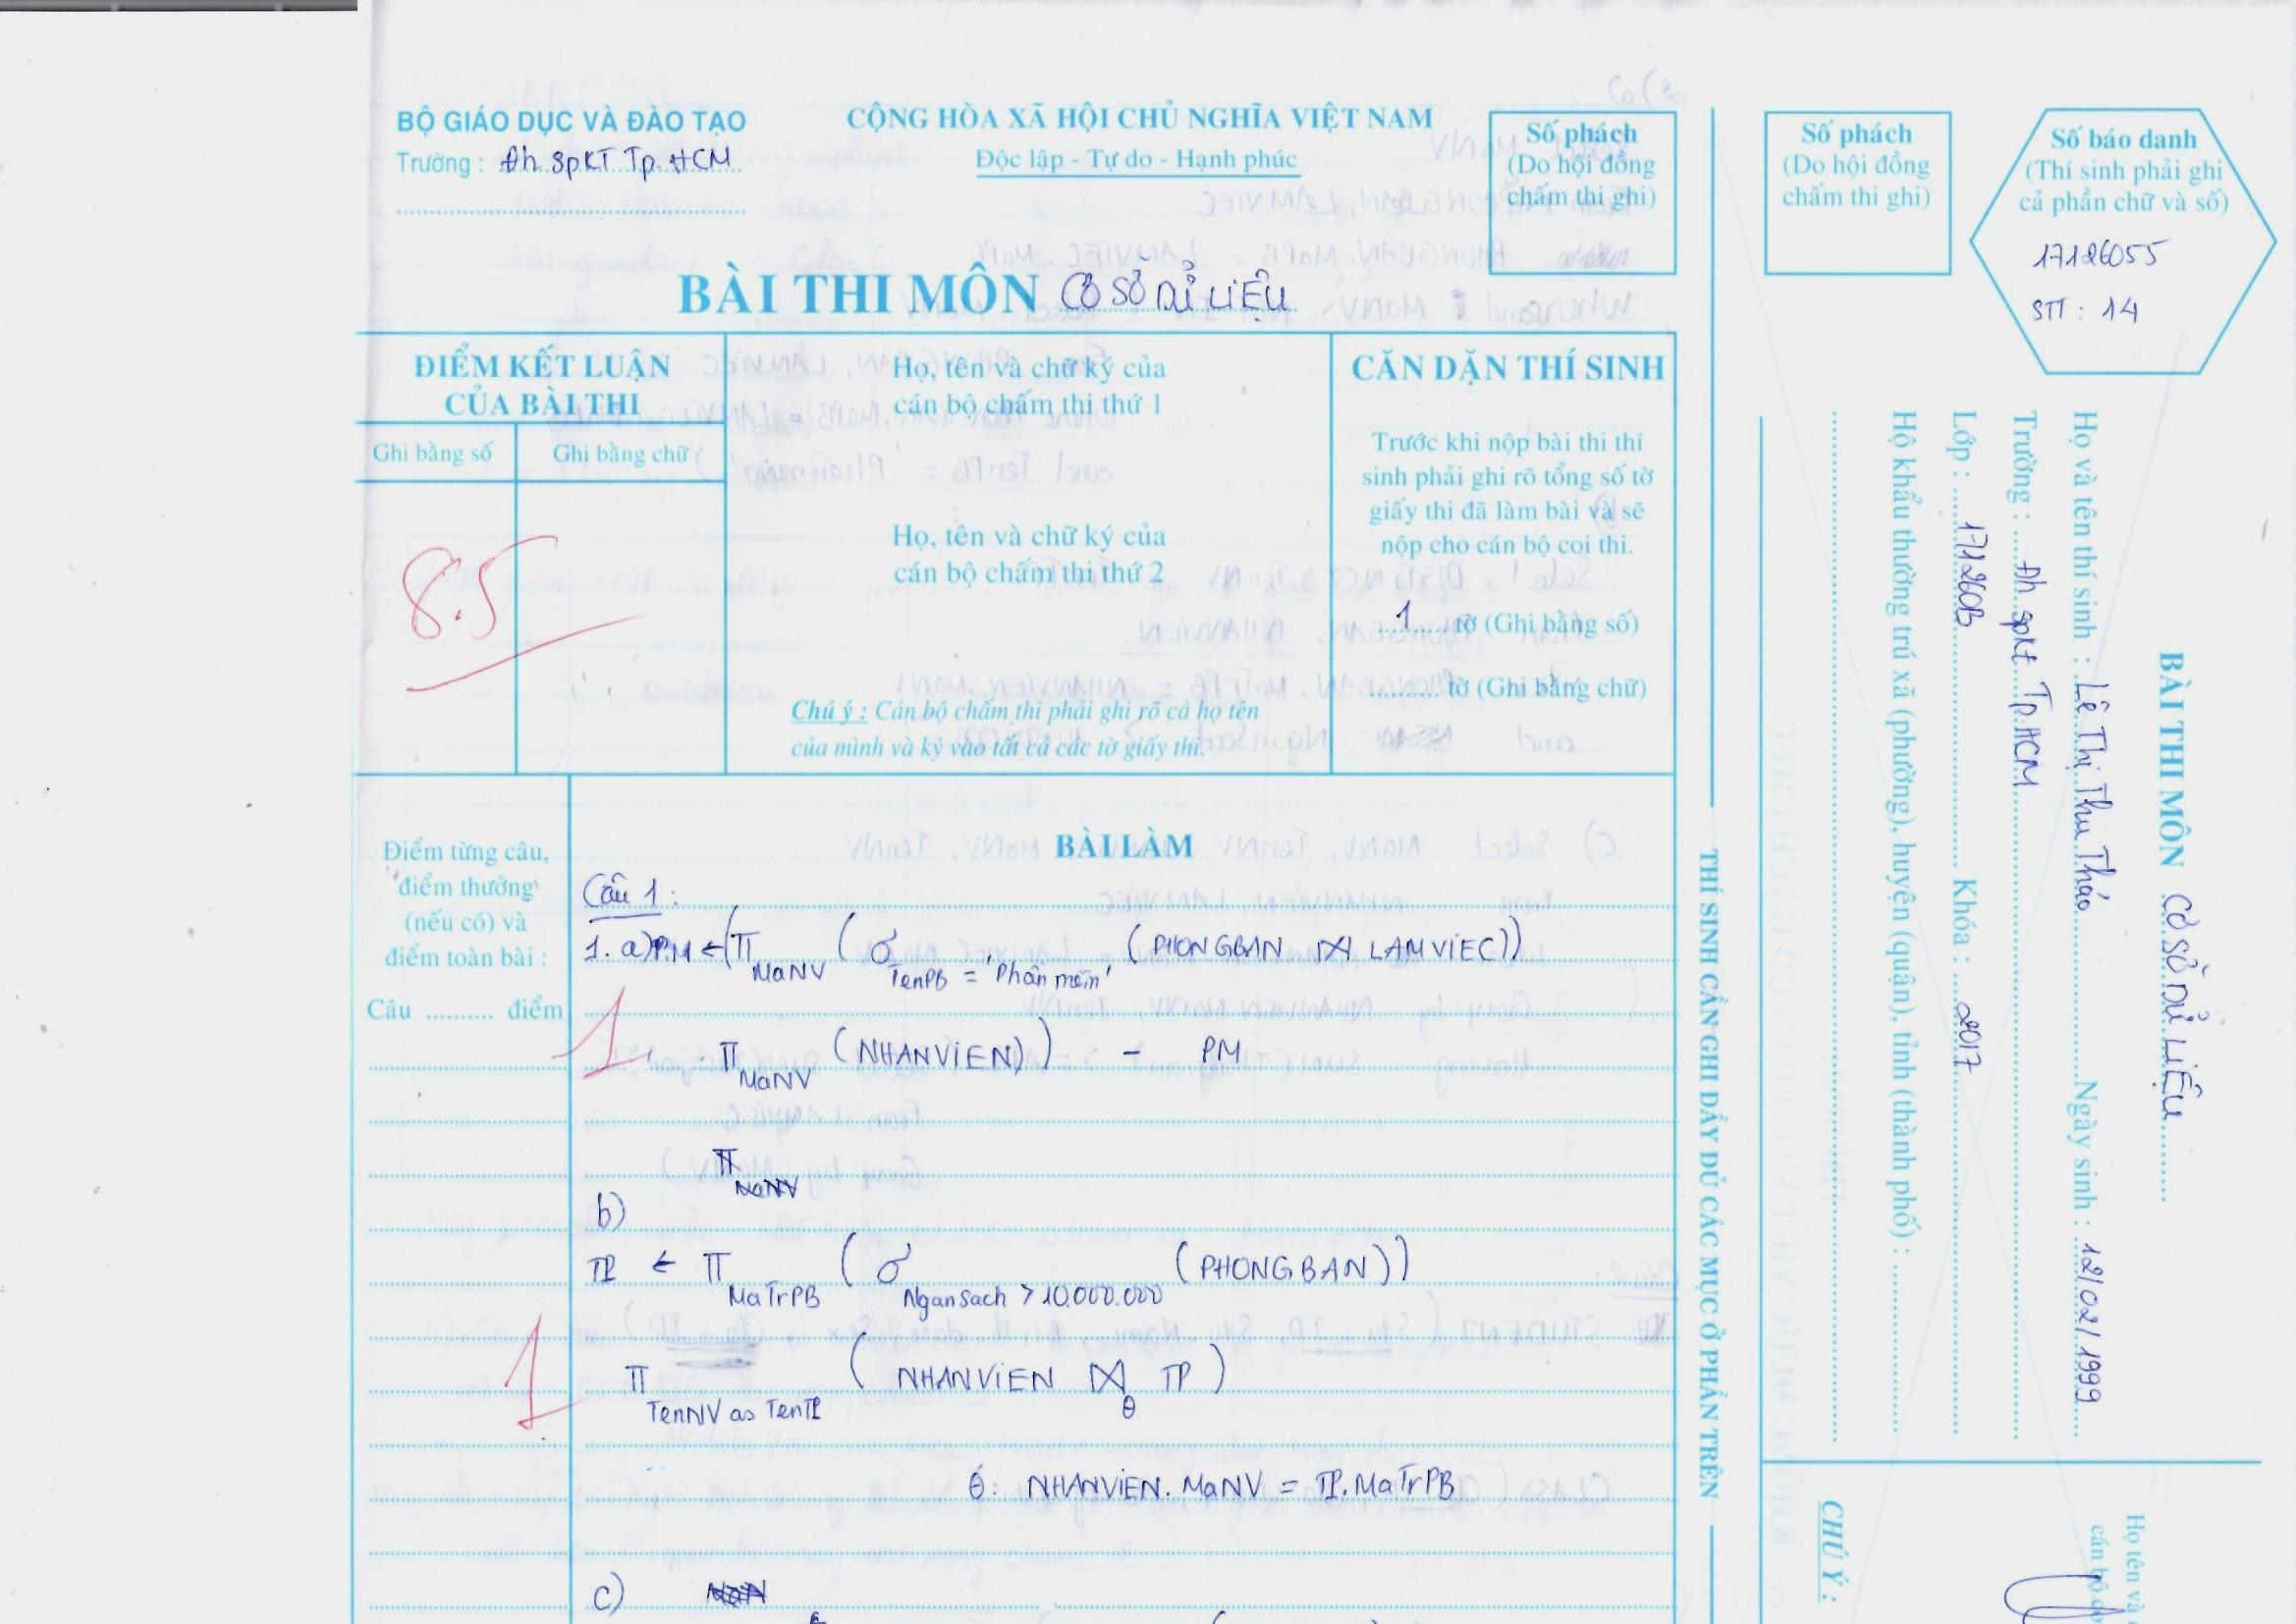 BỘ GIÁO DỤC VÀ ĐÀO TẠO
Trường : Đh SpKT Tp. HCM
CỘNG HÒA XÃ HỘI CHỦ NGHĨA VIỆT NAM
Độc lập - Tự do - Hạnh phúc
Số phách
(Do hội đồng
chấm thi ghi)
BÀI THI MÔN CƠ SỞ DỬ LIỆU
ĐIỂM KẾT LUẬN
CỦA BÀI THI
Ghi bằng số
Ghi bằng chữ
8.5
Họ, tên và chữ ký của
cán bộ chấm thi thứ 1
Họ, tên và chữ ký của
cán bộ chấm thi thứ 2
Chú ý : Cán bộ chấm thi phải ghi rõ cả họ tên
của mình và ký vào tất cả các tờ giấy thi.
CĂN DẶN THÍ SINH
Trước khi nộp bài thi thí
sinh phải ghi rõ tổng số tờ
giấy thi đã làm bài và sẽ
nộp cho cán bộ coi thi.
1 tờ (Ghi bằng số)
tờ (Ghi bằng chữ)
Điểm từng câu,
điểm thưởng
(nếu có) và
điểm toàn bài :
Câu .......... điểm
BÀI LÀM
Câu 1 :
1. a) PM ← (π MaNV (σ TenPB = 'Phần mềm' (PHONGBAN ⋈ LAMVIEC))
1
π MaNV (NHANVIEN)) - PM
π MaNV
b)
TP ← π MaTrPB (σ NganSach > 10.000.000 (PHONGBAN))
1
π TenNV as TenTP (NHANVIEN ⋈ θ TP)
θ: NHANVIEN.MaNV = TP.MaTrPB
c)
THÍ SINH CẦN GHI ĐẦY ĐỦ CÁC MỤC Ở PHẦN TRÊN
Số phách
(Do hội đồng
chấm thi ghi)
Số báo danh
(Thí sinh phải ghi
cả phần chữ và số)
17126055
STT : 14
BÀI THI MÔN CƠ SỞ DỬ LIỆU
Họ và tên thí sinh : Lê Thị Thu Thảo Ngày sinh : 12/02/1999
Trường : Đh SpKt Tp.HCM
Lớp : 171260B Khóa : 2017
Hộ khẩu thường trú xã (phường), huyện (quận), tỉnh (thành phố) :
CHÚ Ý :
Họ tên và
cán bộ